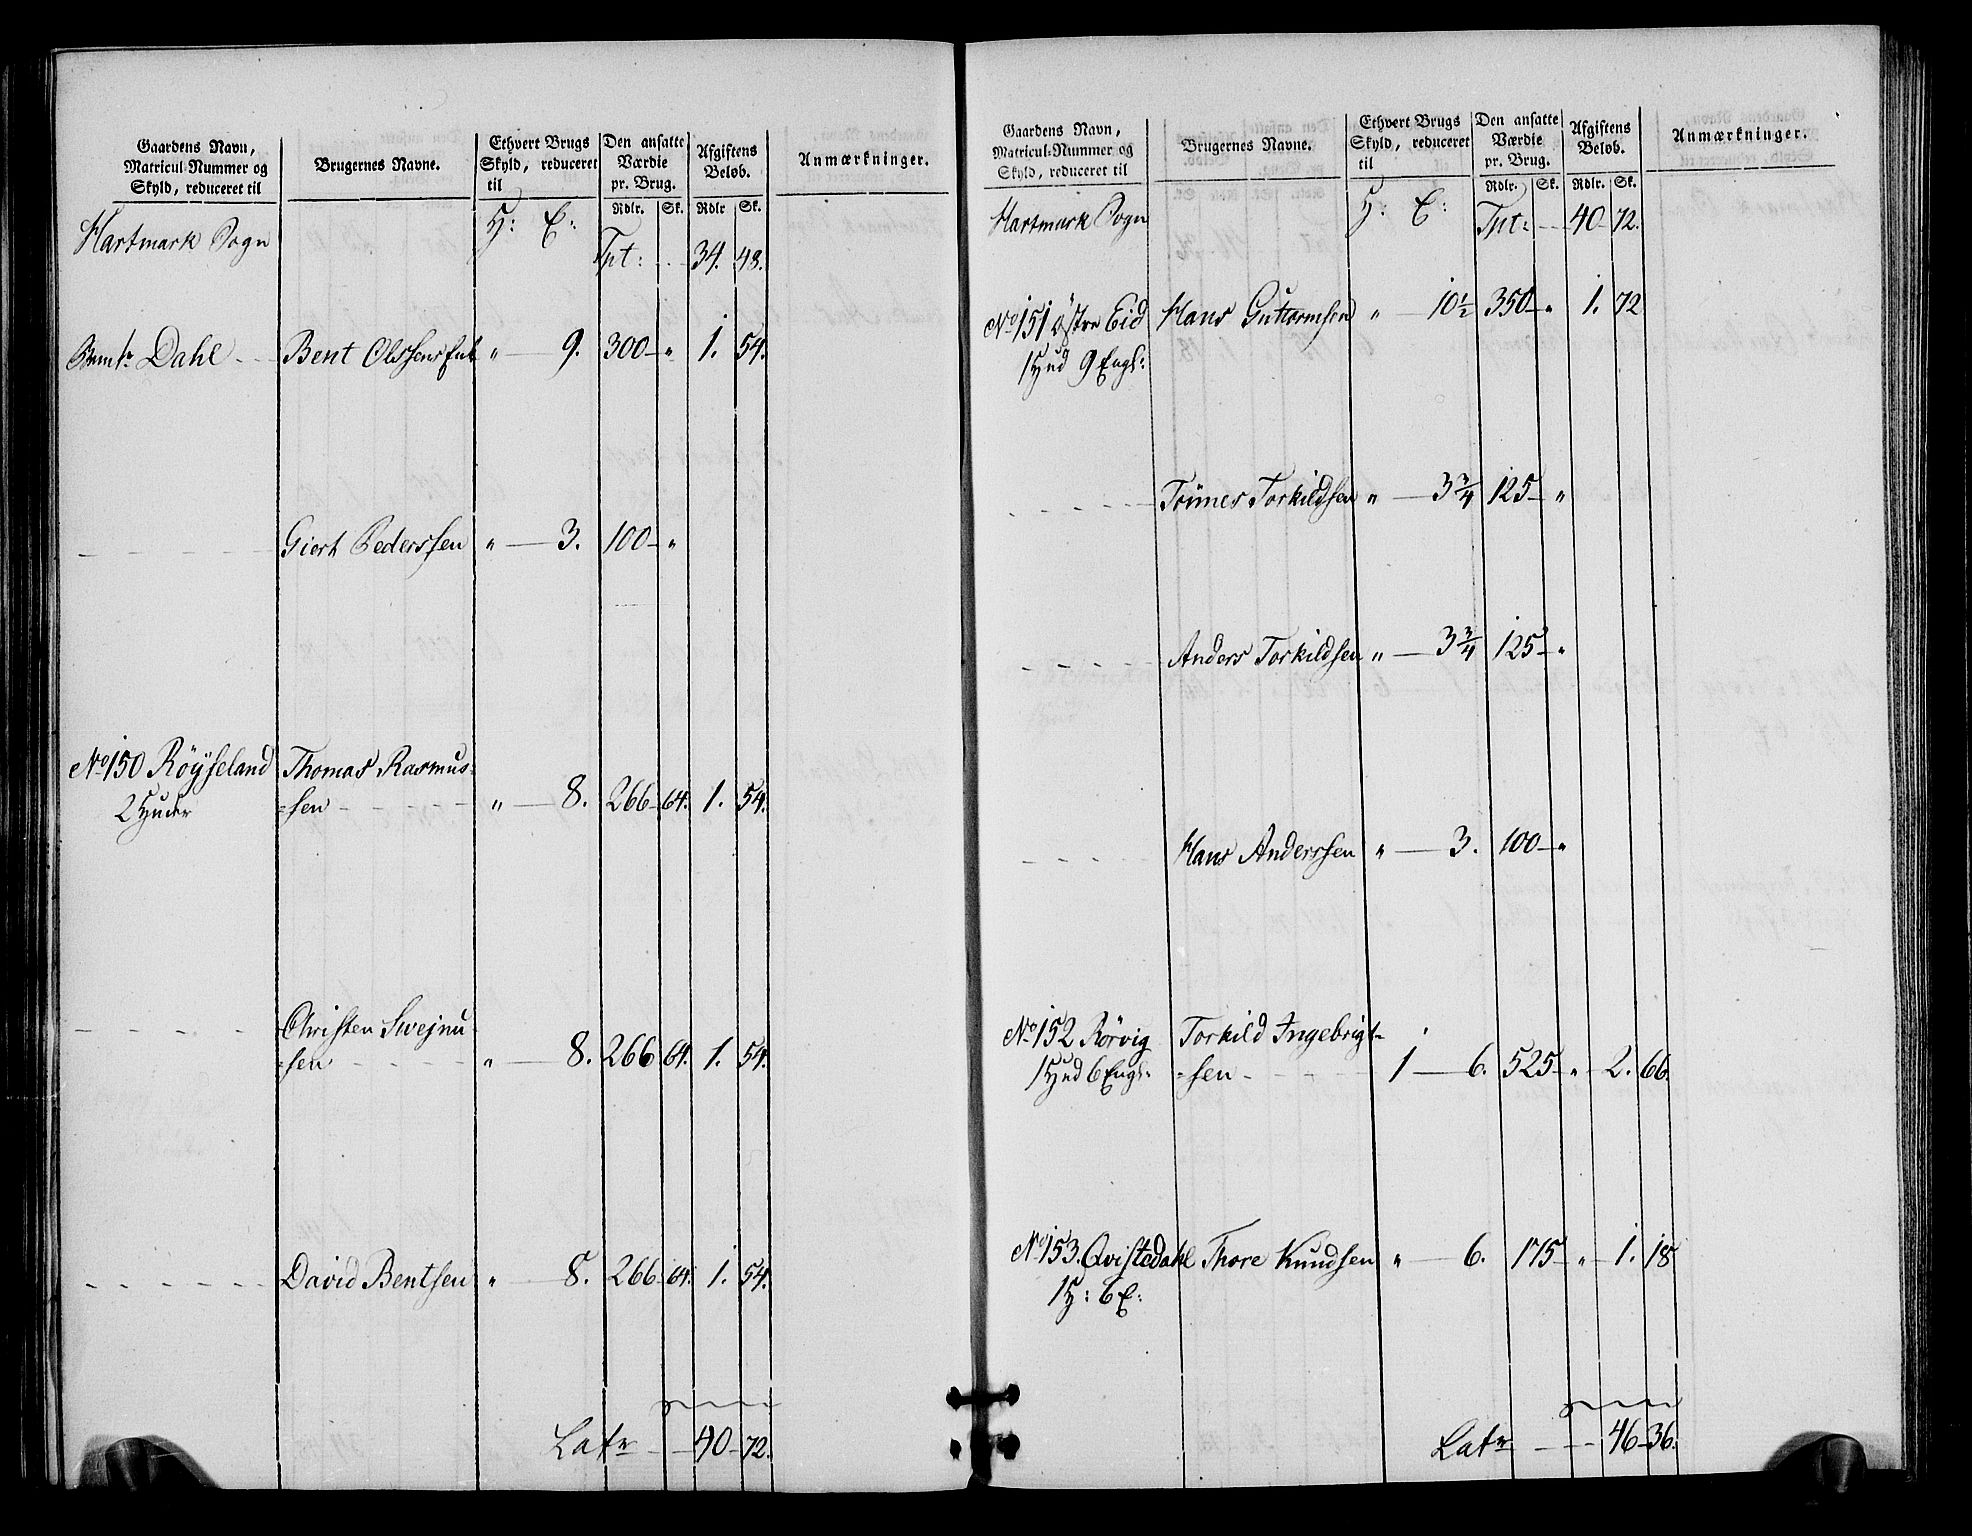 Gaardens Navn, Matricul-Nummer og Skyld, reduceret til | Brugernes Navne. | Ethvert Brugs Skyld, reduceret til | Den ansatte Værdie pr. Brug. | Afgiftens Beløb. | Anmærkninger.
Rdlr. Sk. Rdlr Sk.
Hartmark Sogn H: E: Tpt: 34. 48.
Dahl Bent Olssens " 9. 300 " 1. 54.
Giert Pederssen " 3. 100 "
No 150 Röÿseland Thomas Rasmus-
2 Huder =sen " 8. 266 64. 1. 54.
Christen Swejnu
=sen " 8. 266 64. 1. 54.
David Bentsen " 8. 266 64. 1. 54.
Latr 40 72.
Gaardens Navn, Matricul-Nummer og Skyld, reduceret til | Brugernes Navne. | Ethvert Brugs Skyld, reduceret til | Den ansatte Værdie pr. Brug. | Afgiftens Beløb. | Anmærkninger.
Rdlr. Sk. Rdlr. Sk.
Hartmark Sogn H: E: Tpt: 40 72.
No 151 Östre Eid Hans Guttormsen " 10½ 350 " 1. 72
1 Hud 9 Engl:
Tönnes Torkildsen " 3¾ 125 "
Anders Torkildsen " 3¾ 125 "
Hans Anderssen " 3. 100 "
No 152 Rörvig Torkild Ingebrigt-
1 Hud 6 Engl: =sen 1 6. 525 " 2. 66.
No 153. Qvistedahl Thore Knudsen " 6. 175 " 1. 18
1 H: 6 E:
Latr 46 36.